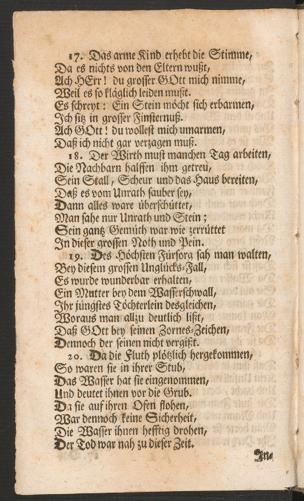 17. Das arme Kind erhebt die Stimme,
Da es nichts von den Eltern wußt,
Ach HErr! du grosser GOtt mich nimme,
Weil es so kläglich leiden mußt.
Es schreyt: Ein Stein möcht sich erbarmen,
Ich sitz in grosser Finsternuß.
Ach GOtt! du wollest mich umarmen,
Daß ich nicht gar verzagen muß.
18. Der Wirth must manchen Tag arbeiten,
Die Nachbarn halffen ihm getreu,
Sein Stall, Scheur und das Haus bereiten,
Daß es vom Unrath sauber sey,
Dann alles ware überschüttet,
Man sahe nur Unrath und Stein;
Sein gantz Gemüth war wie zerrüttet
In dieser grossen Noth und Pein.
19. Des Höchsten Fürsorg sah man walten,
Bey diesem grossen Unglücks-Fall,
Es wurde wunderbar erhalten,
Ein Mutter bey dem Wasserschwall,
Ihr jüngstes Töchterlein desgleichen,
Woraus man allzu deutlich lißt,
Daß GOtt bey seinen Zornes-Zeichen,
Dennoch der seinen nicht vergißt.
20. Da die Fluth plötzlich hergekommen,
So waren sie in ihrer Stub,
Das Wasser hat sie eingenommen,
Und deutet ihnen vor die Grub.
Da sie auf ihren Ofen flohen,
War dennoch keine Sicherheit,
Die Wasser ihnen hefftig drohen,
Der Tod war nah zu dieser Zeit.